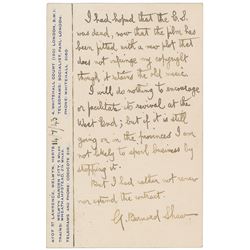 I had hoped that the C.S.
was dead, now that the film has
been fitted with a new plot that
does not infringe my copyright
though it retains the old music.
I will do nothing to encourage
or facilitate its revival at the
West End; but if it is still
going on in the provinces I am
not likely to spoil business by
stopping it.
But I had rather not renew
nor extend the contract.
G. Bernard Shaw
4, WHITEHALL COURT (130) LONDON, S.W.1.
TELEGRAMS: SOCIALIST PARL-LONDON.
PHONE: WHITEHALL 3160.
AYOT ST LAWRENCE, WELWYN, HERTS.